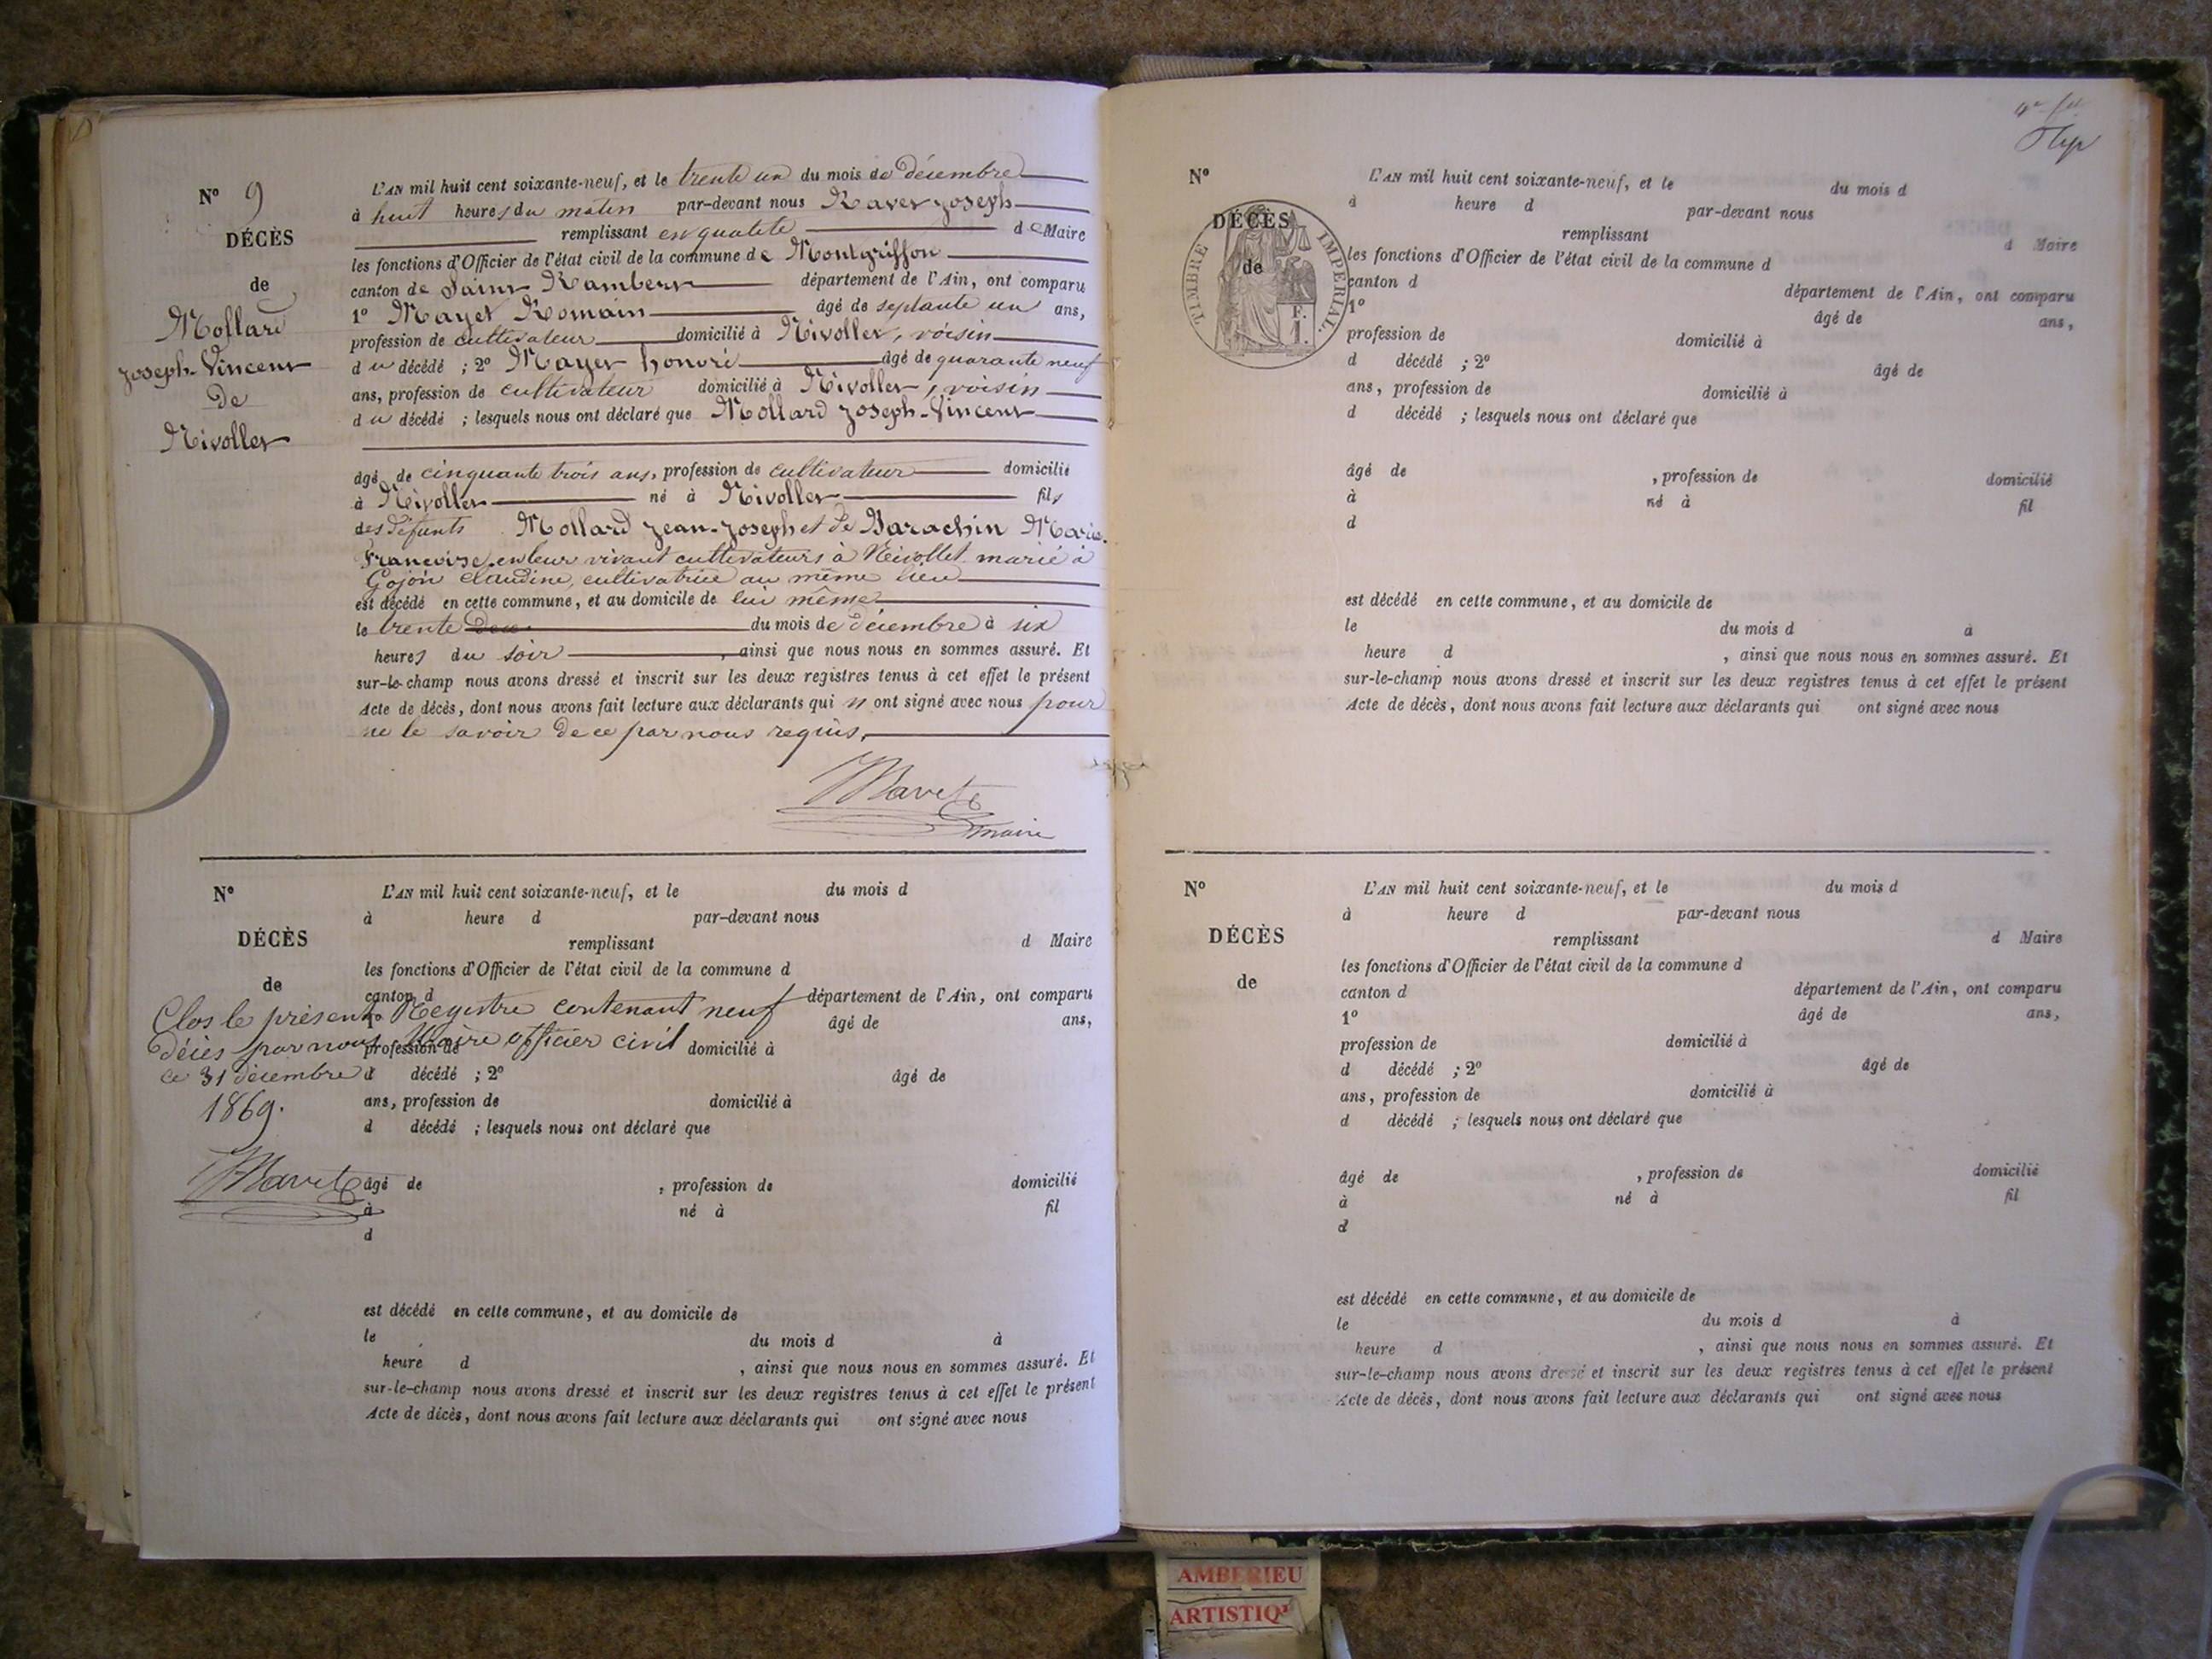 N° 9
DÉCÈS
de
Mollard
Joseph-Vincent
de
Nivollet
L'AN mil huit cent soixante-neuf, et le trente un du mois de décembre
à huit heures du matin par-devant nous Ravet Joseph
remplissant en qualité de Maire
les fonctions d'Officier de l'état civil de la commune de Montgriffon
canton de Saint Rambert département de l'Ain, ont comparu
1° Mayet Romain âgé de septante un ans,
profession de cultivateur domicilié à Nivollet, voisin
du décédé ; 2° Mayet honoré âgé de quarante neuf
ans, profession de cultivateur domicilié à Nivollet, voisin
du décédé ; lesquels nous ont déclaré que Mollard Joseph-Vincent
âgé de cinquante trois ans, profession de cultivateur domicilié
à Nivollet né à Nivollet fils
des défunts Mollard Jean-Joseph et de Barachin Marie-
Françoise, en leur vivant cultivateurs à Nivollet marié à
Gojon Claudine, cultivatrice au même lieu
est décédé en cette commune, et au domicile de lui même
le trente du mois de décembre à six
heures du soir , ainsi que nous nous en sommes assuré. Et
sur-le-champ nous avons dressé et inscrit sur les deux registres tenus à cet effet le présent
Acte de décès, dont nous avons fait lecture aux déclarants qui n ont signé avec nous pour
ne le savoir de ce par nous requis,
Ravet
maire
N°
DÉCÈS
de
L'AN mil huit cent soixante-neuf, et le du mois d
à heure d par-devant nous
remplissant d Maire
les fonctions d'Officier de l'état civil de la commune d
canton d département de l'Ain, ont comparu
1° âgé de ans,
profession de domicilié à
d décédé ; 2° âgé de
ans, profession de domicilié à
d décédé ; lesquels nous ont déclaré que
Clos le présent Registre contenant neuf
décès par nous Maire officier civil
ce 31 décembre
1869.
Ravet
âgé de , profession de domicilié
à né à fil
d
est décédé en cette commune, et au domicile de
le du mois d à
heure d , ainsi que nous nous en sommes assuré. Et
sur-le-champ nous avons dressé et inscrit sur les deux registres tenus à cet effet le présent
Acte de décès, dont nous avons fait lecture aux déclarants qui ont signé avec nous
N°
DÉCÈS
de
TIMBRE IMPERIAL.
F.
1.
L'AN mil huit cent soixante-neuf, et le du mois d
à heure d par-devant nous
remplissant d Maire
les fonctions d'Officier de l'état civil de la commune d
canton d département de l'Ain, ont comparu
1° âgé de ans,
profession de domicilié à
d décédé ; 2° âgé de
ans, profession de domicilié à
d décédé ; lesquels nous ont déclaré que
âgé de , profession de domicilié
à né à fil
d
est décédé en cette commune, et au domicile de
le du mois d à
heure d , ainsi que nous nous en sommes assuré. Et
sur-le-champ nous avons dressé et inscrit sur les deux registres tenus à cet effet le présent
Acte de décès, dont nous avons fait lecture aux déclarants qui ont signé avec nous
N°
DÉCÈS
de
L'AN mil huit cent soixante-neuf, et le du mois d
à heure d par-devant nous
remplissant d Maire
les fonctions d'Officier de l'état civil de la commune d
canton d département de l'Ain, ont comparu
1° âgé de ans,
profession de domicilié à
d décédé ; 2° âgé de
ans, profession de domicilié à
d décédé ; lesquels nous ont déclaré que
âgé de , profession de domicilié
à né à fil
d
est décédé en cette commune, et au domicile de
le du mois d à
heure d , ainsi que nous nous en sommes assuré. Et
sur-le-champ nous avons dressé et inscrit sur les deux registres tenus à cet effet le présent
Acte de décès, dont nous avons fait lecture aux déclarants qui ont signé avec nous
AMBERIEU
ARTISTIQ